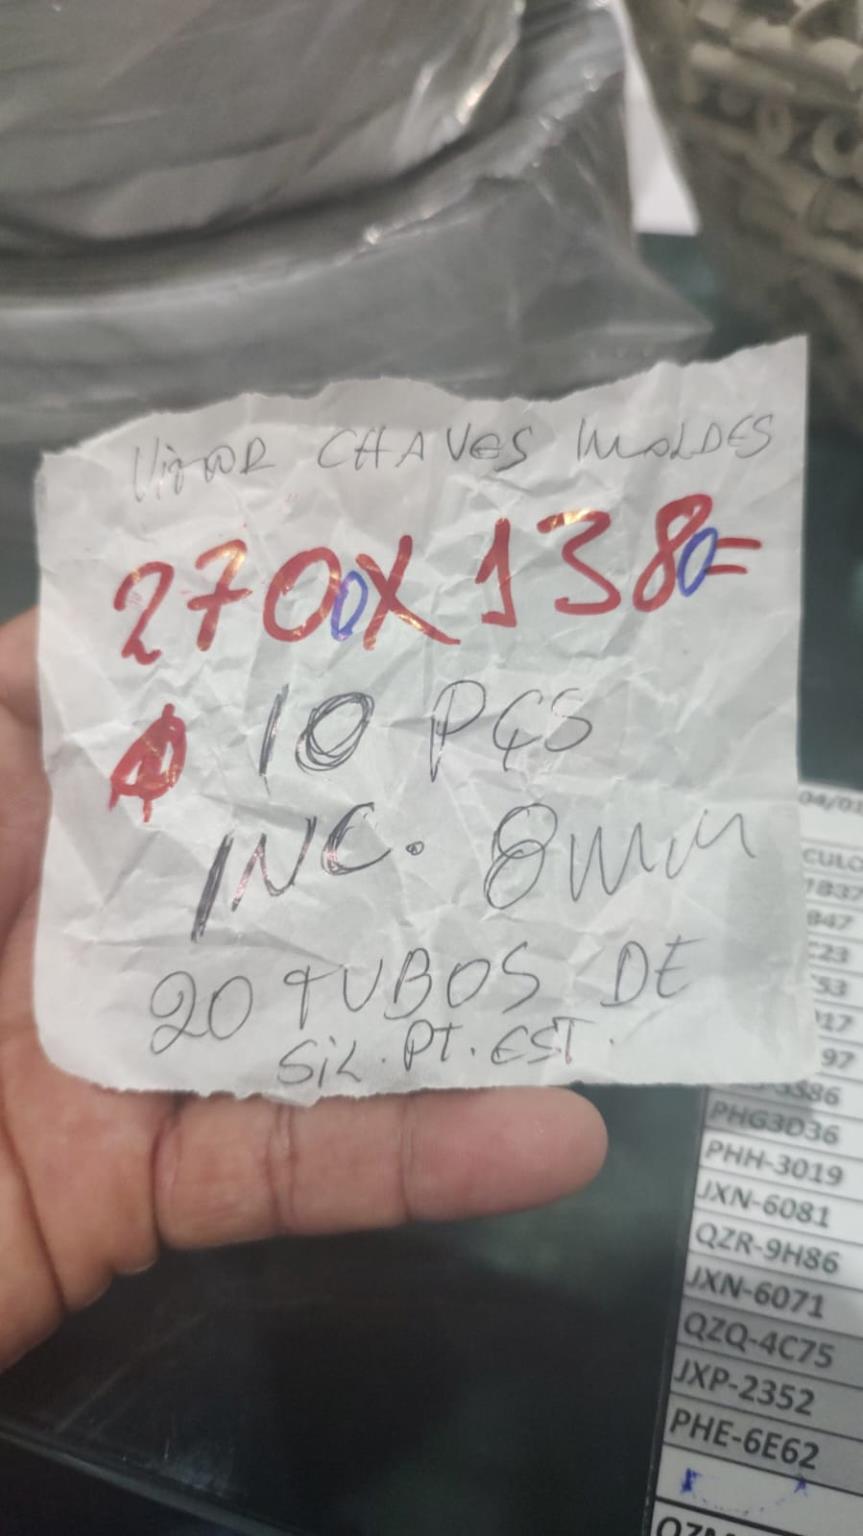 CHAVES
2700X1380=
10 PÇS
INC. 8mm
20 TUBOS DE
SIL. PT. EST.
04/01
CULO
1837
847
C23
53
917
97
3S86
PHG3D36
PHH-3019
JXN-6081
QZR-9H86
JXN-6071
QZQ-4C75
JXP-2352
PHE-6E62